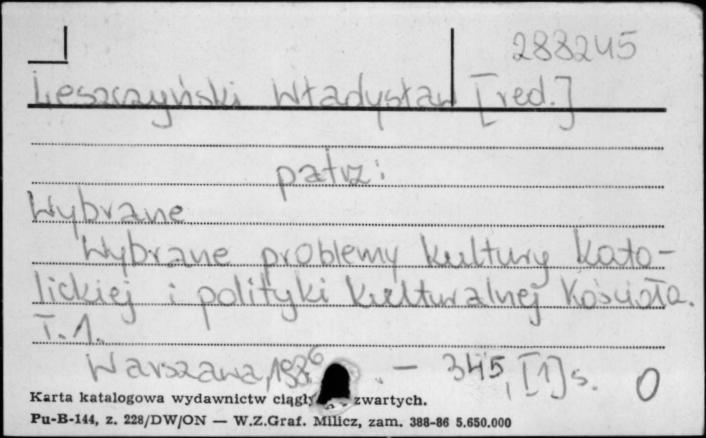 288245
Leszczyński Władysław [red.]
patrz:
Wybrane
Wybrane problemy kultury kato-
lickiej i polityki kulturalnej Kościoła.
T. 1.
Warszawa, 1986. — 345, [1] s. 0
Karta katalogowa wydawnictw zwartych.
Pu-B-144, z. 228/DW/ON — W.Z.Graf. Milicz, zam. 388-86 5.650.000